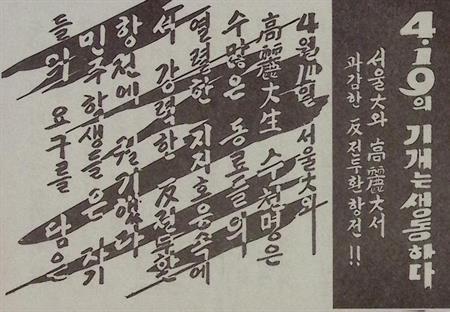 4.19의 기개는 생동하다
서울大와 高麗大서
과감한 反전두환항전 !!
4월 서울大와
高麗大生 수천명은
수많은 동료들의
열렬한 지지호응속에
서 강력한 反전두환
항전에 궐기했다
민주학생들은 자기
들의 요구를 담은